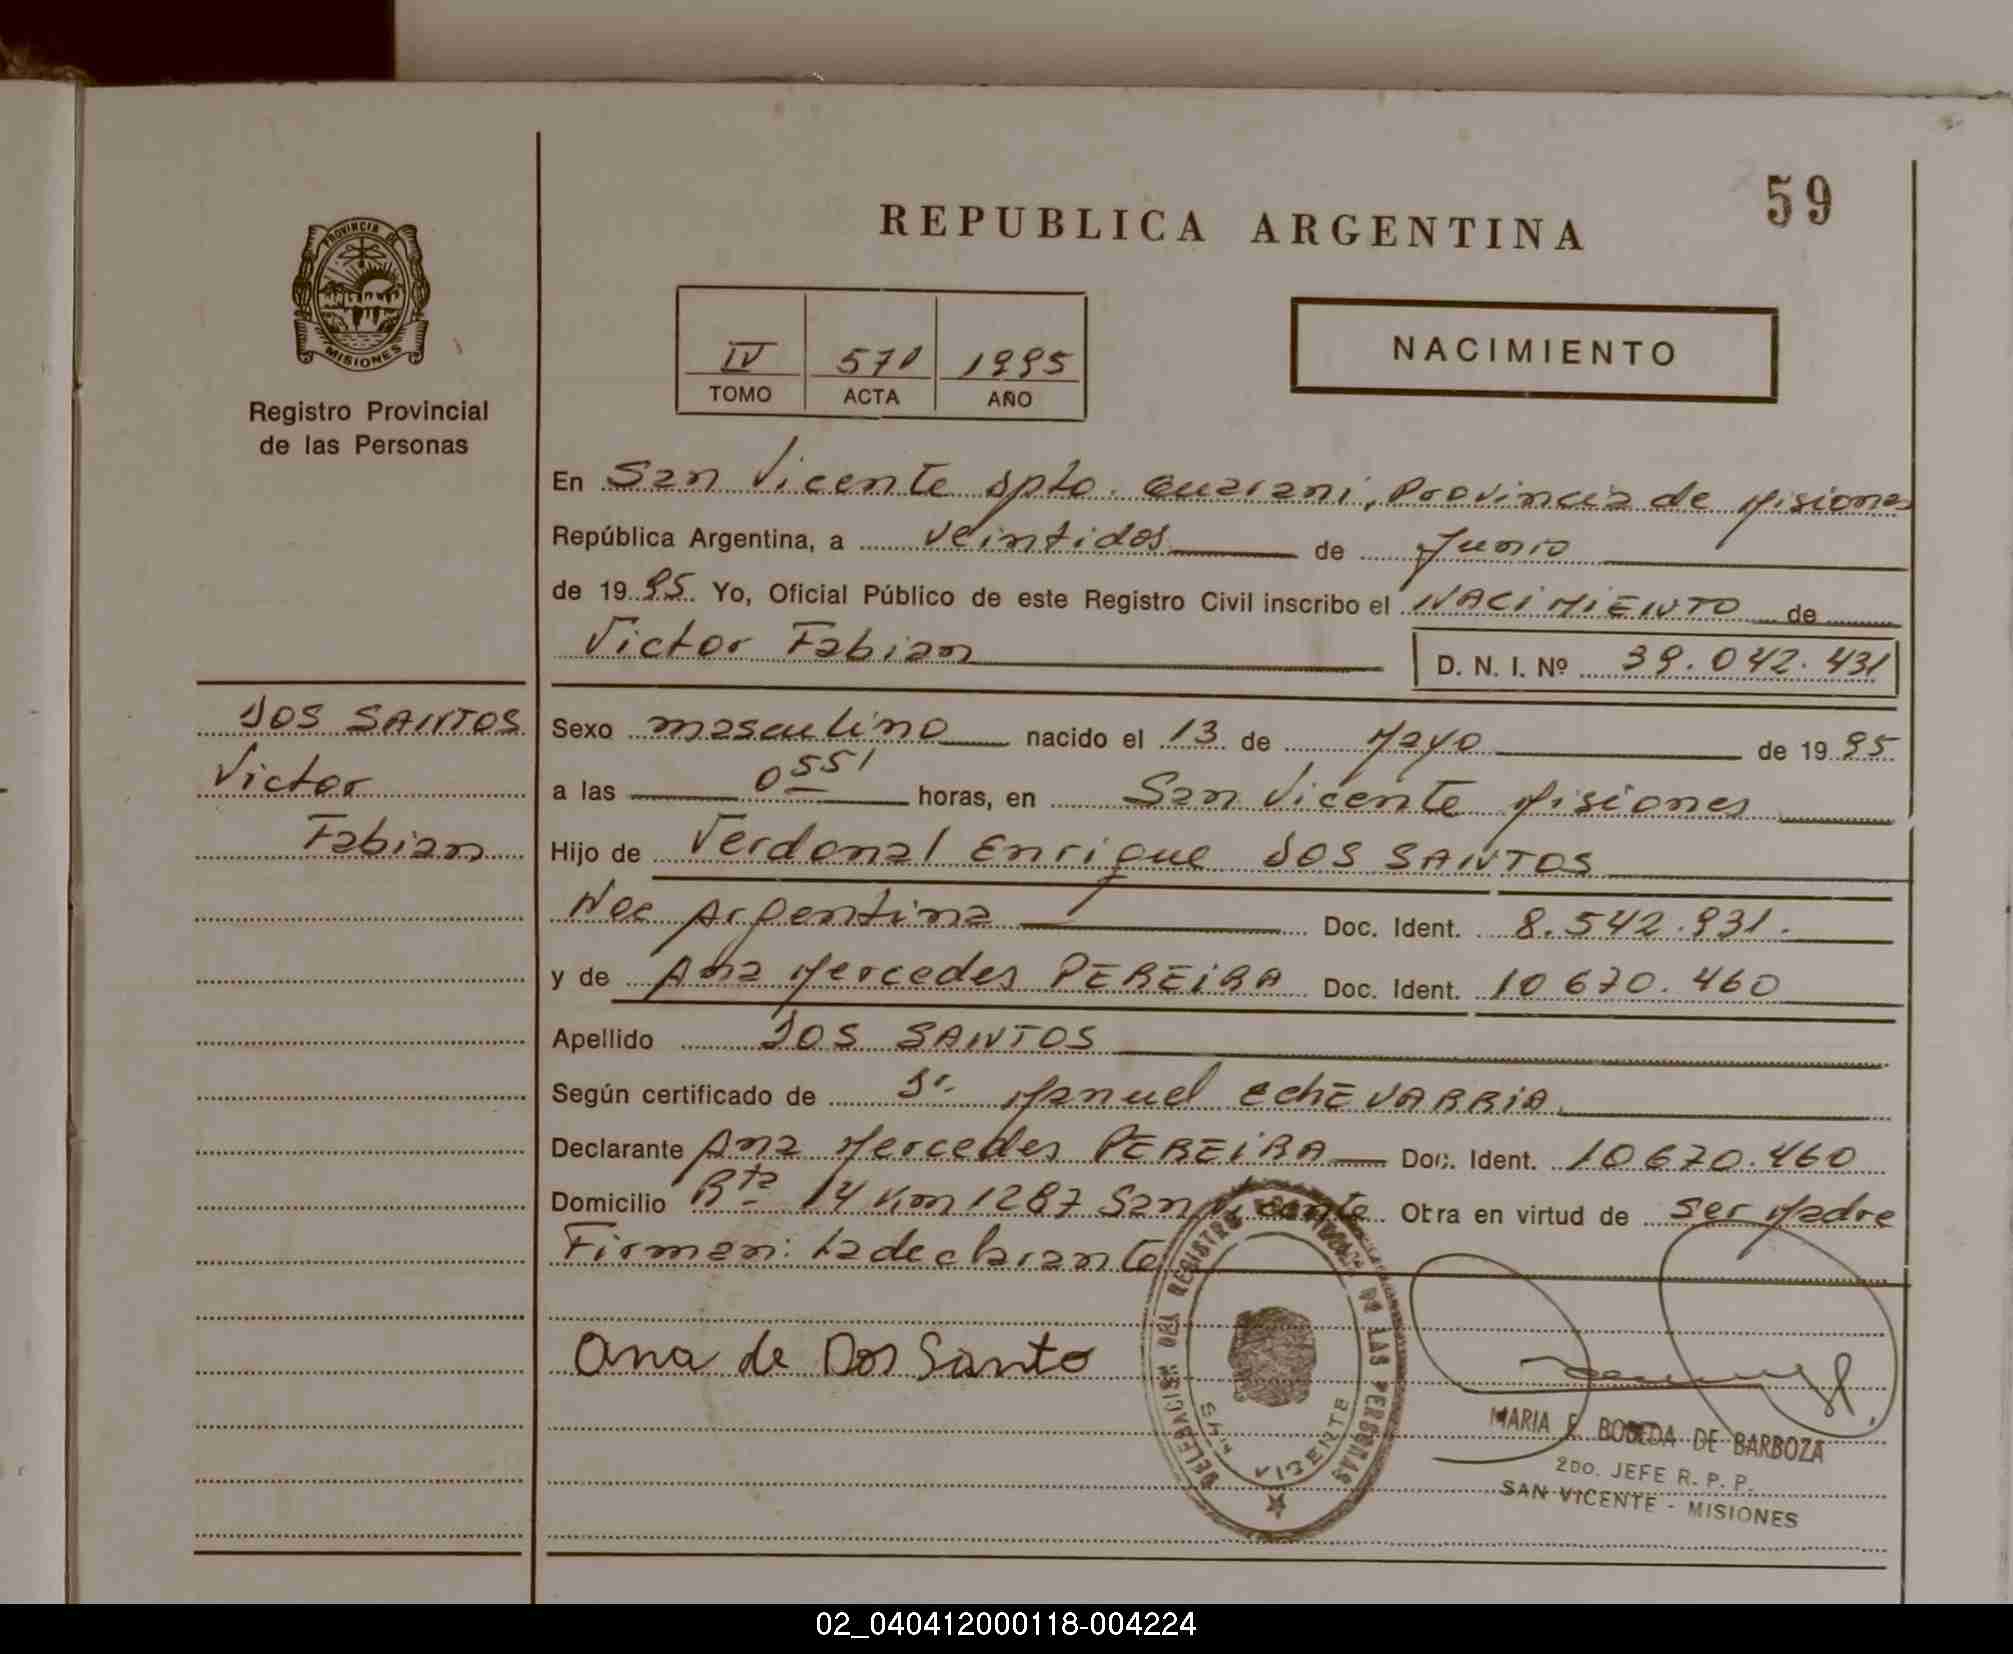 59
REPUBLICA ARGENTINA
PROVINCIA DE
MISIONES
Registro Provincial
de las Personas
IV 571 1995
TOMO ACTA AÑO
NACIMIENTO
En San Vicente dpto. Guarani, Provincia de Misiones
República Argentina, a veintidos de Junio
de 1995 Yo, Oficial Público de este Registro Civil inscribo el NACIMIENTO de
Victor Fabian D. N. I. Nº 39.042.431
DOS SANTOS
Victor
Fabian
Sexo masculino nacido el 13 de Mayo de 1995
a las 0 55' horas, en San Vicente Misiones
Hijo de Verdonal Enrique DOS SANTOS
Nac Argentina Doc. Ident. 8.542.931.
y de Ana Mercedes PEREIRA Doc. Ident. 10 670.460
Apellido DOS SANTOS
Según certificado de Dr. Manuel EchEVARRIA
Declarante Ana Mercedes PEREIRA Doc. Ident. 10 670.460
Domicilio Rta 14 Km 1287 San Vicente Otra en virtud de ser Madre
Firman: La declarante
Ana de Dos Santo
DELEGACION DEL REGISTRO PROVINCIAL DE LAS PERSONAS
SAN VICENTE
MARIA E. BOBEDA DE BARBOZA
2DO. JEFE R. P. P.
SAN VICENTE - MISIONES
02_040412000118-004224